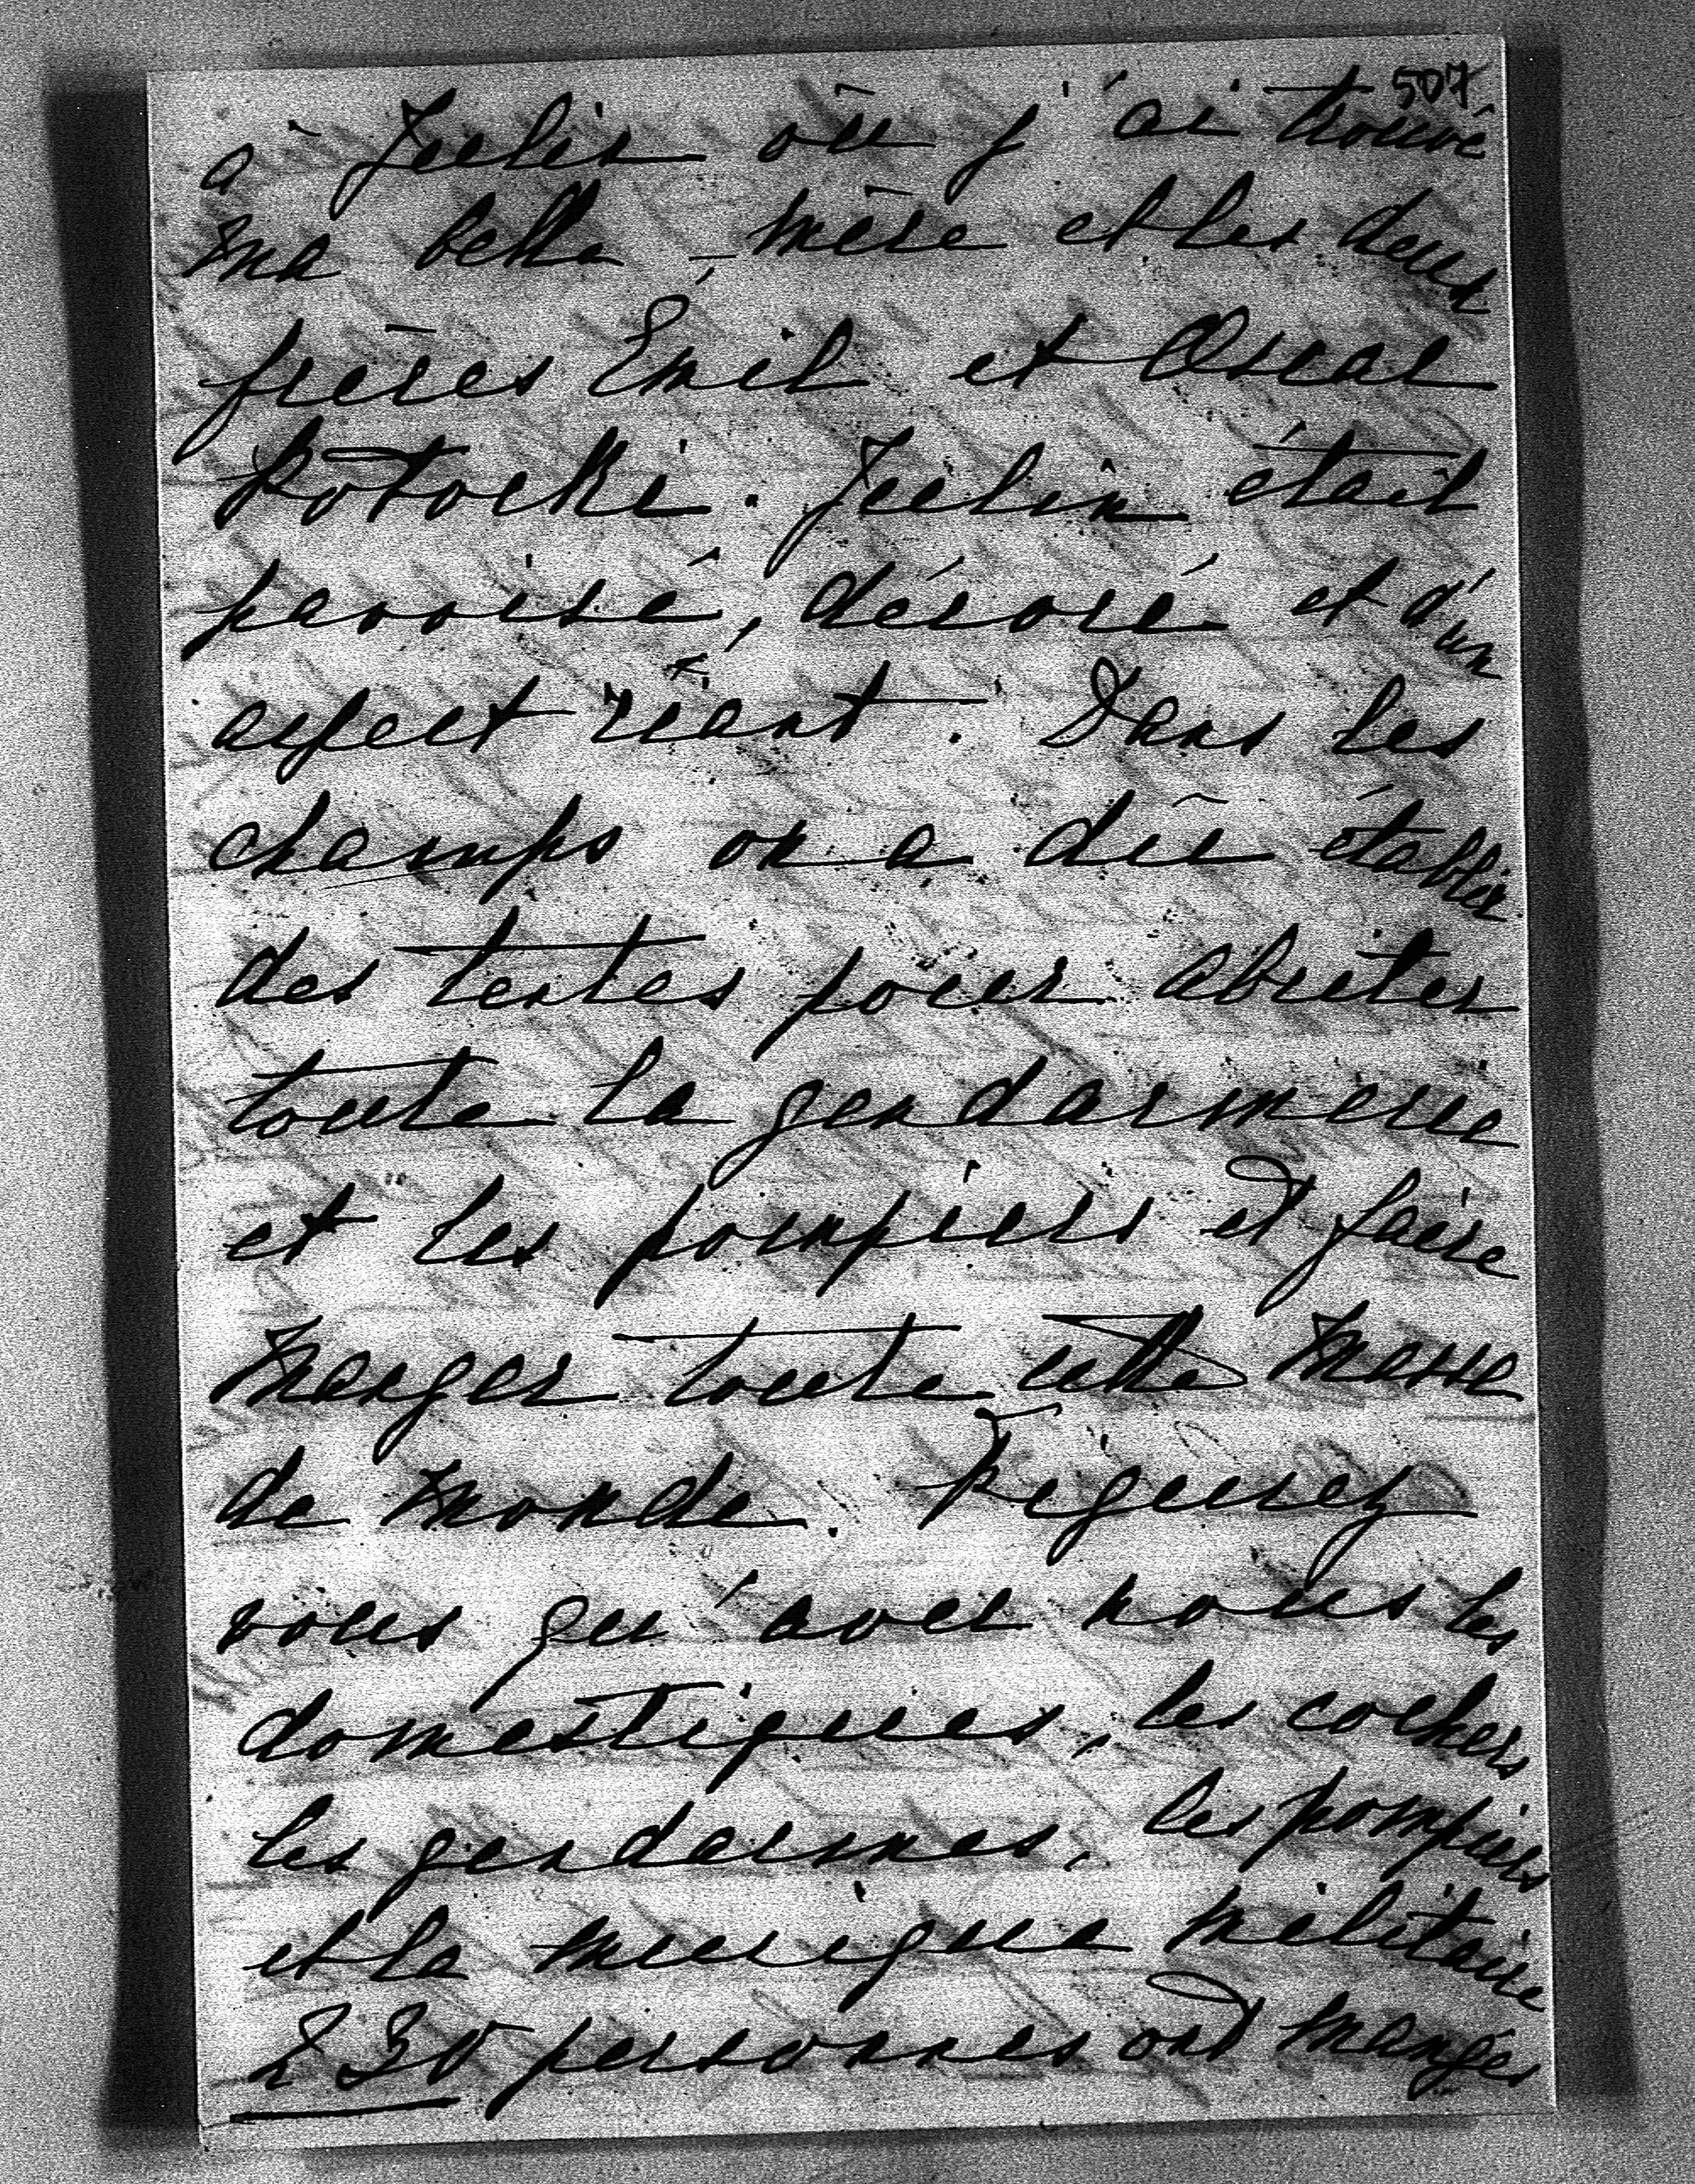 507
à Julin où j'ai trouvé
ma belle-mère et les deux
frères Émil et Oscar
Potocki. Julin était
pavoisé, décoré et d'un
aspect riant. Dans les
champs on a dû établir
des tentes pour abriter
toute la gendarmerie
et les pompiers et faire
manger toute cette masse
de monde. Figurez
vous qu'avec nous les
domestiques, les cochers
les gendarmes, les pompiers
et la musique militaire
230 personnes ont mangés